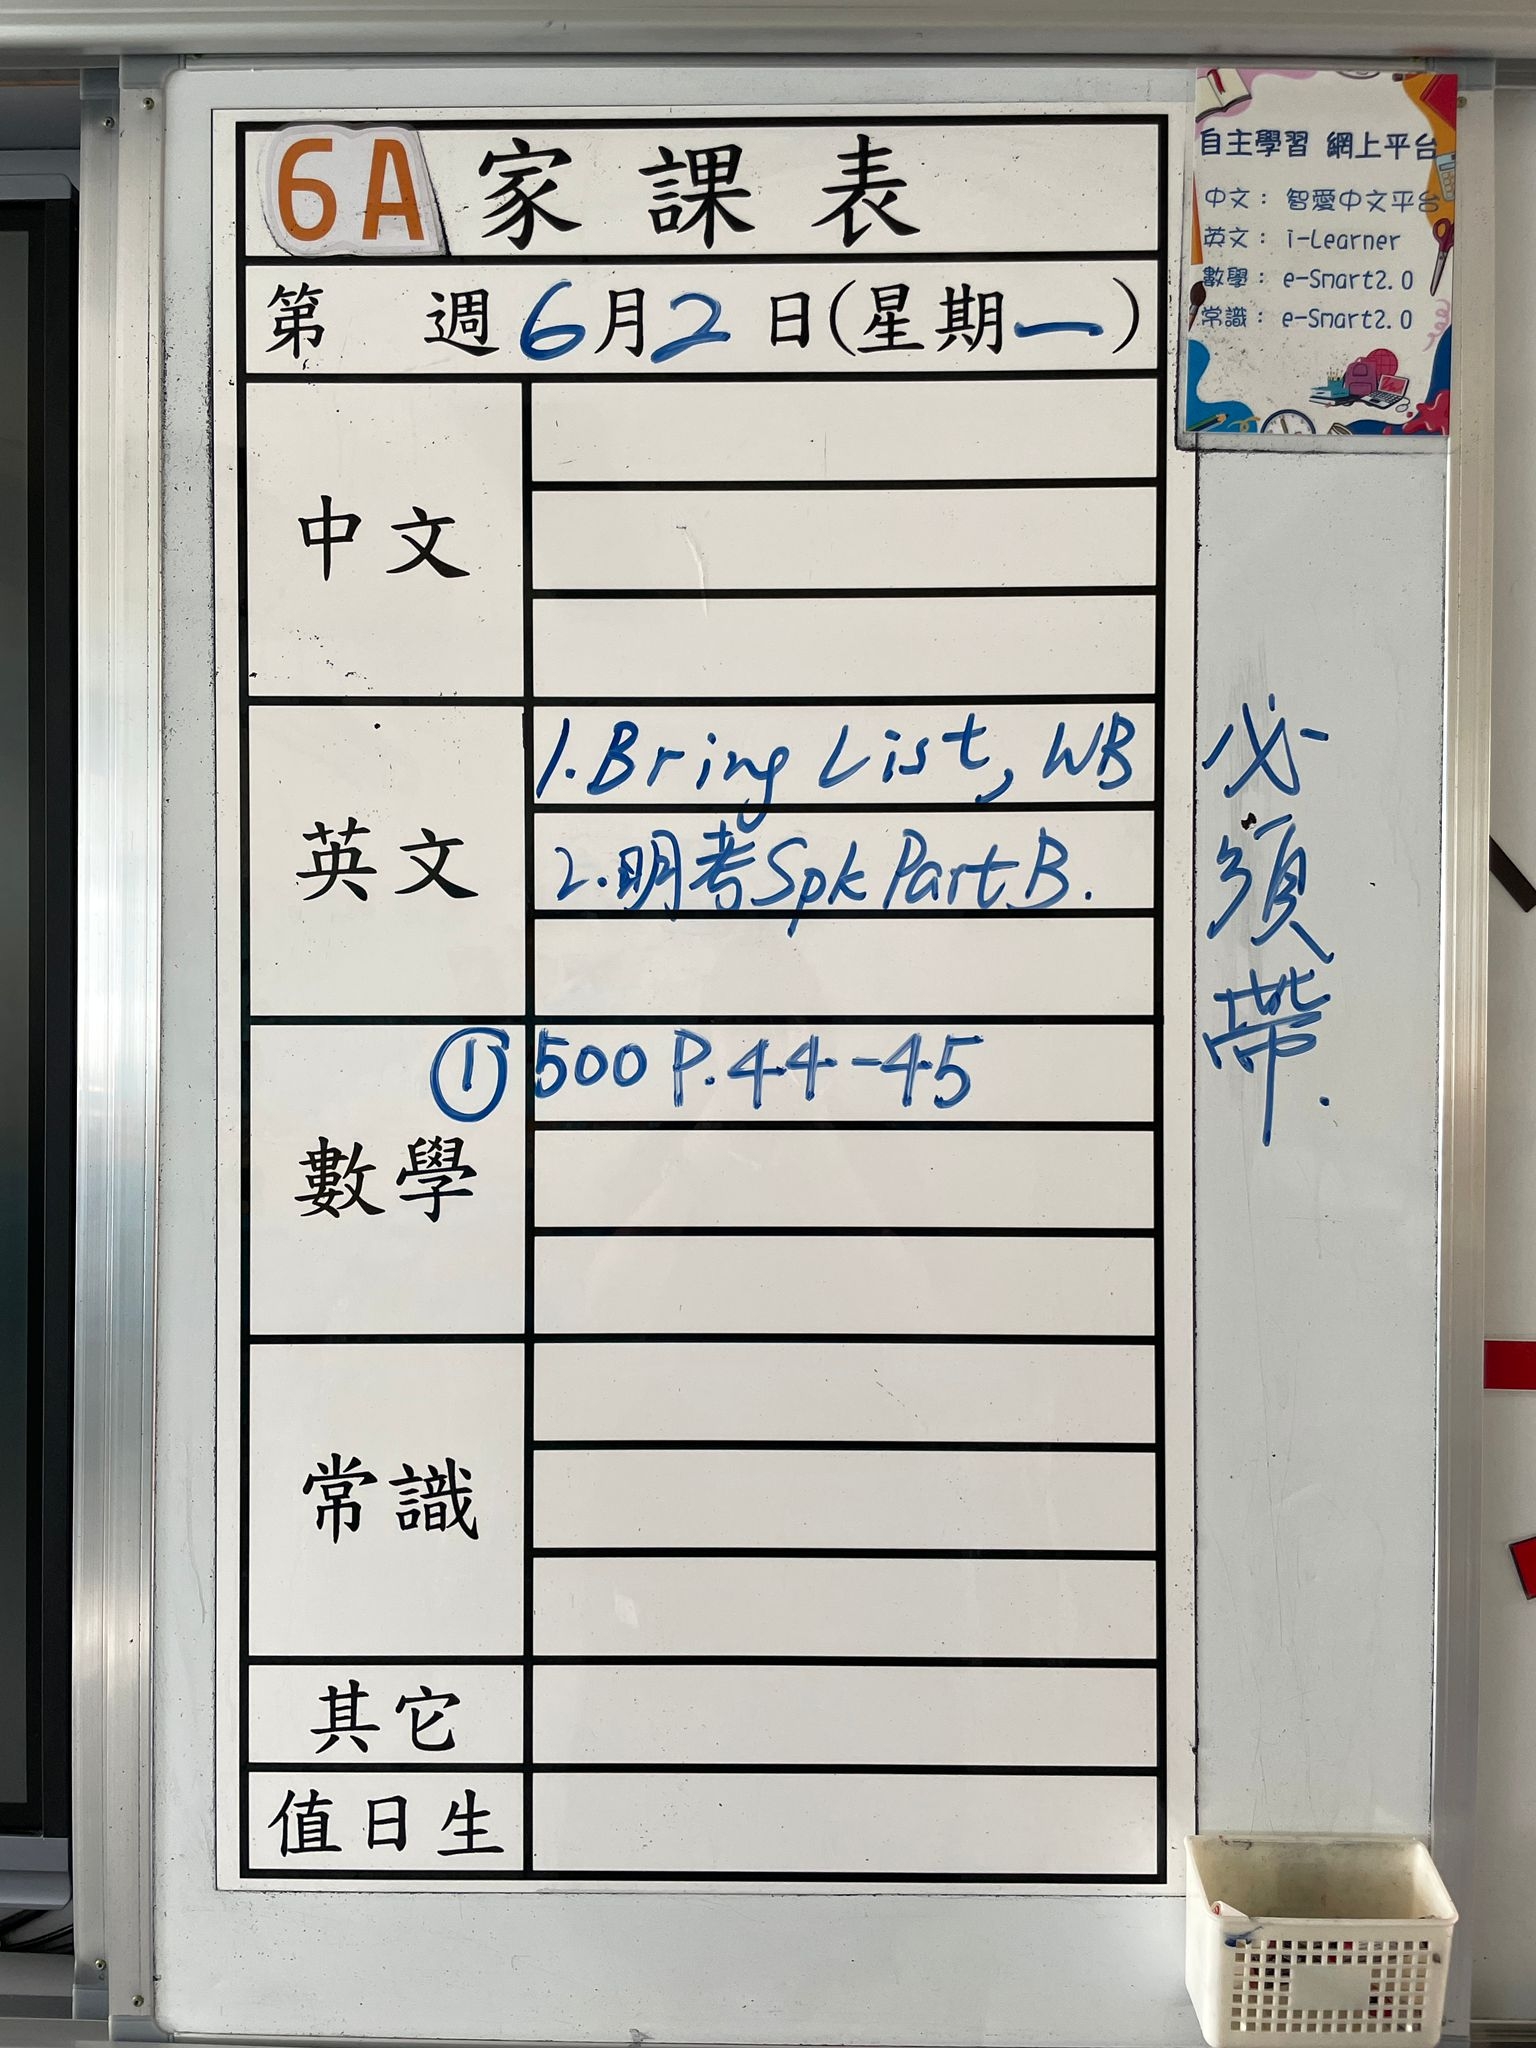 6A 家課表
第 週 6月2日(星期一)
中文
英文
1. Bring List, WB
2. 明考 Spk Part B.
必須帶.
數學
① 500 P.44-45
常識
其它
值日生
自主學習 網上平台
中文： 智愛中文平台
英文： i-Learner
數學： e-Smart2.0
常識： e-Smart2.0